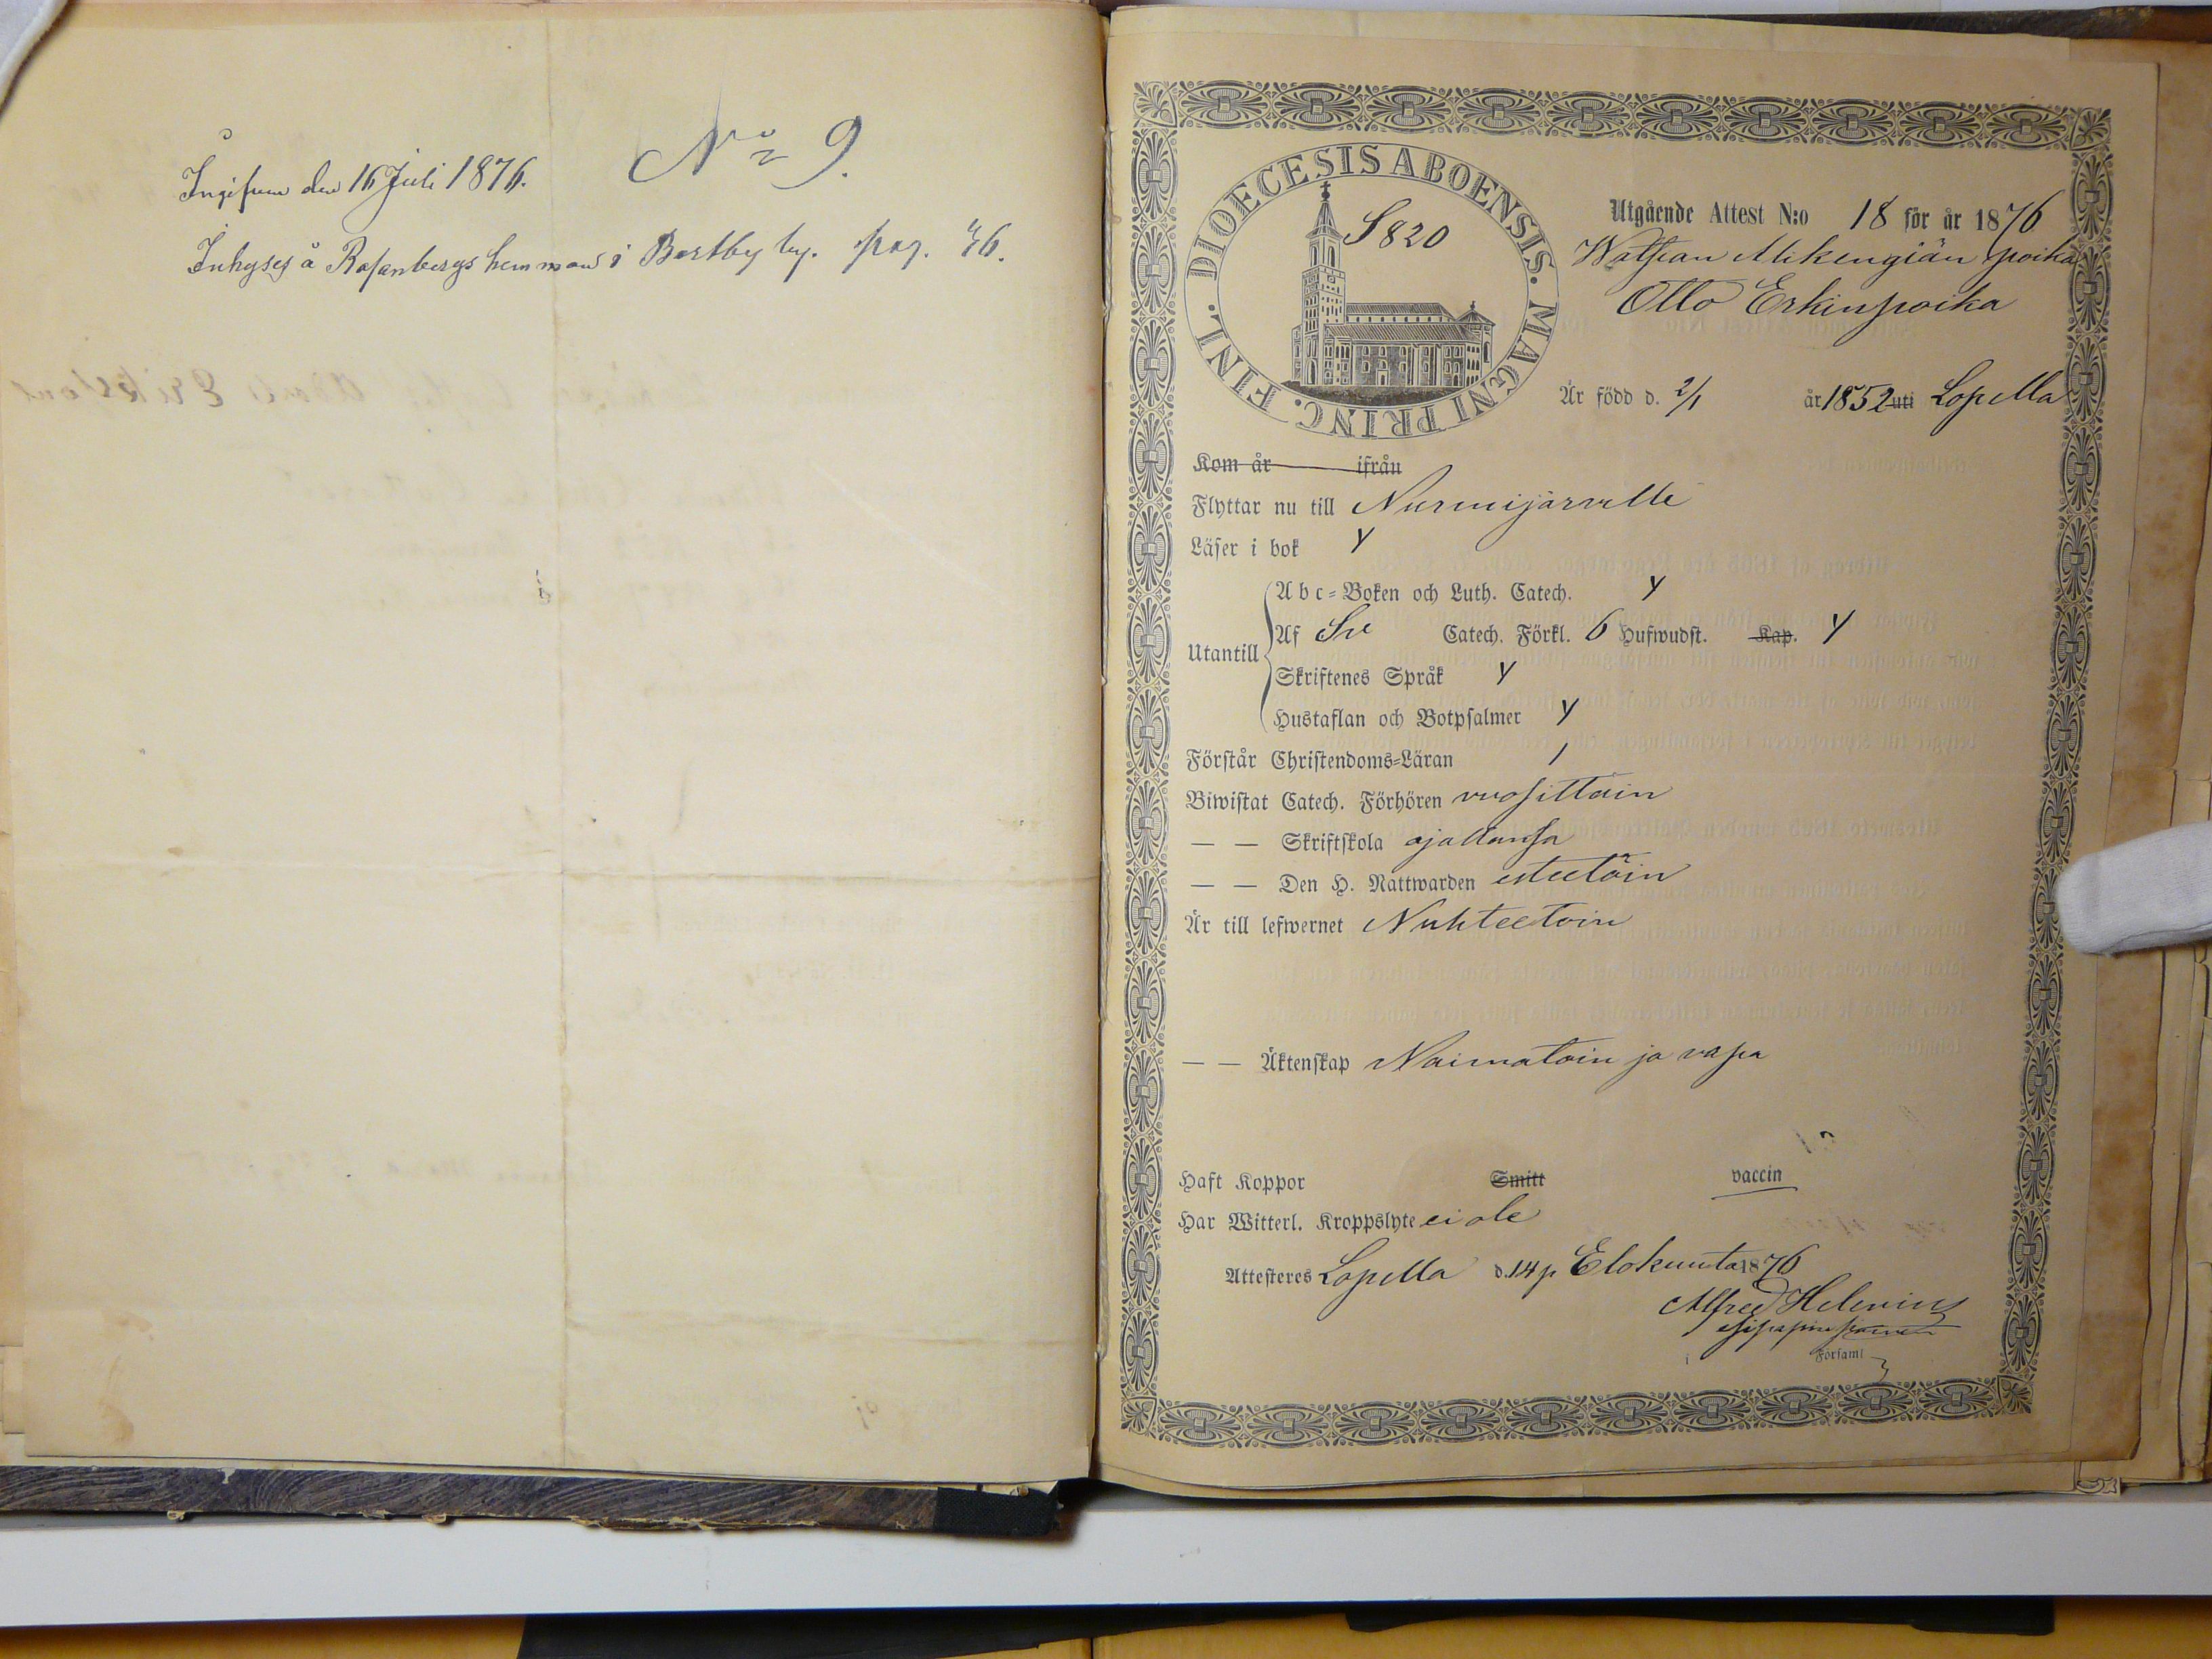 No 9.
Ingifven den 16 Juli 1876.
Inhyses å Rosenbergs hemman i Bastby by. pag. 46.
DIOECESIS ABOENSIS. MAGNI PRINC. FINL.
S 820
Utgående Attest N:o 18 för år 1876
poika
Otto Erkinpoika
Är född d. 2/1 år 1852 uti Lopella
Kom år ifrån
Flyttar nu till Nurmijärvelle
Läser i bok y
Utantill
Abc-Boken och Luth. Catech. y
Af Sv Catech. Förkl. 6 Hufwudst. Kap. y
Skriftenes Språk y
Hustaflan och Botpsalmer y
Förstår Christendoms-Läran 1
Biwistat Catech. Förhören vuosittain
— — Skriftskola ajallansa
— — Den H. Nattwarden esteetöin
Är till lefwernet Nuhteetoin
— — Äktenskap Naimatoin ja vapa
Haft Koppor Smitt vaccin
Har Witterl. Kroppslyte ei ole
Attesteres Lopella d. 14 p. Elokuuta 1876
Alfred Helenius
i Församl